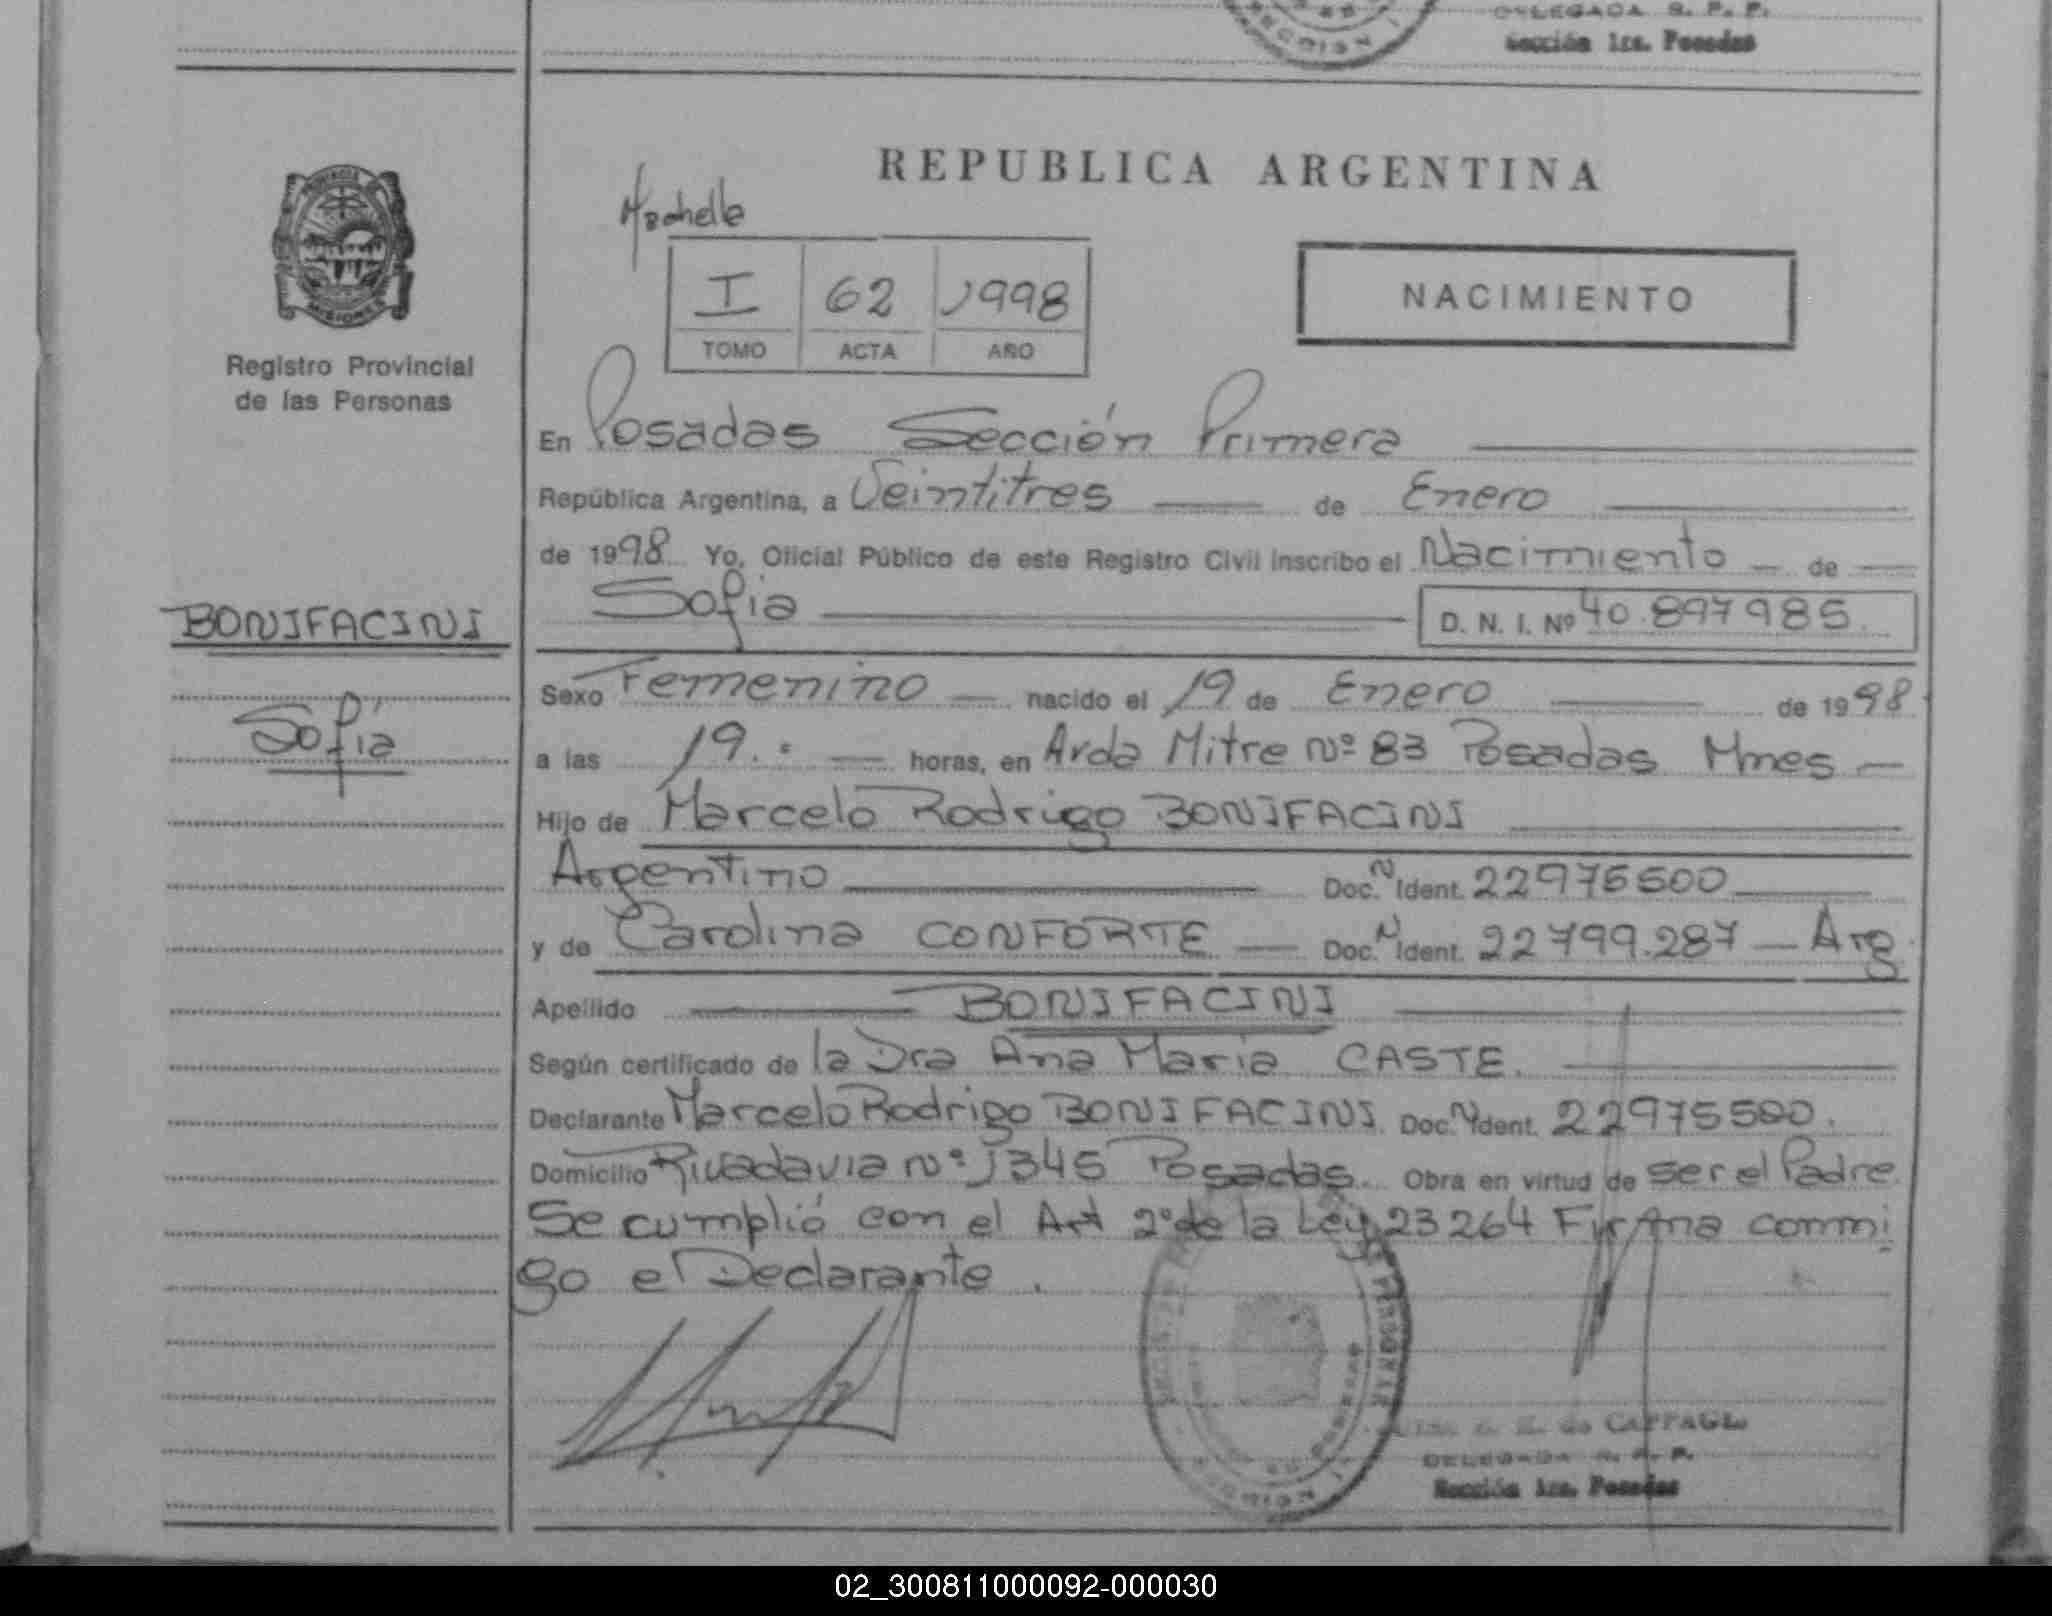 DELEGADA R. P. P.
Sección 1ra. Posadas
PROVINCIA DE
MISIONES
Registro Provincial
de las Personas
REPUBLICA ARGENTINA
I 62 1998
TOMO ACTA AÑO
NACIMIENTO
En Posadas Sección Primera
República Argentina, a Veintitres de Enero
de 1998 Yo, Oficial Público de este Registro Civil inscribo el Nacimiento de
Sofia D. N. I. Nº 40.897985.
BONIFACINI
Sofía
Sexo Femenino nacido el 19 de Enero de 1998
a las 19. horas, en Avda Mitre Nº 83 Posadas Mnes
Hijo de Marcelo Rodrigo BONIFACINI
Argentino Doc. N Ident. 22975500
y de Carolina CONFORTE Doc. N Ident. 22799.287 Arg.
Apellido BONIFACINI
Según certificado de la Dra Ana Maria CASTE.
Declarante Marcelo Rodrigo BONIFACINI. Doc. N Ident. 22975500.
Domicilio Rivadavia Nº 1345 Posadas. Obra en virtud de ser el Padre
Se cumplió con el Art 2º de la Ley 23264 Firma conmi
go el Declarante.
de CAFFAGL
DELEGADA R. P. P.
Sección 1ra. Posadas
02_300811000092-000030